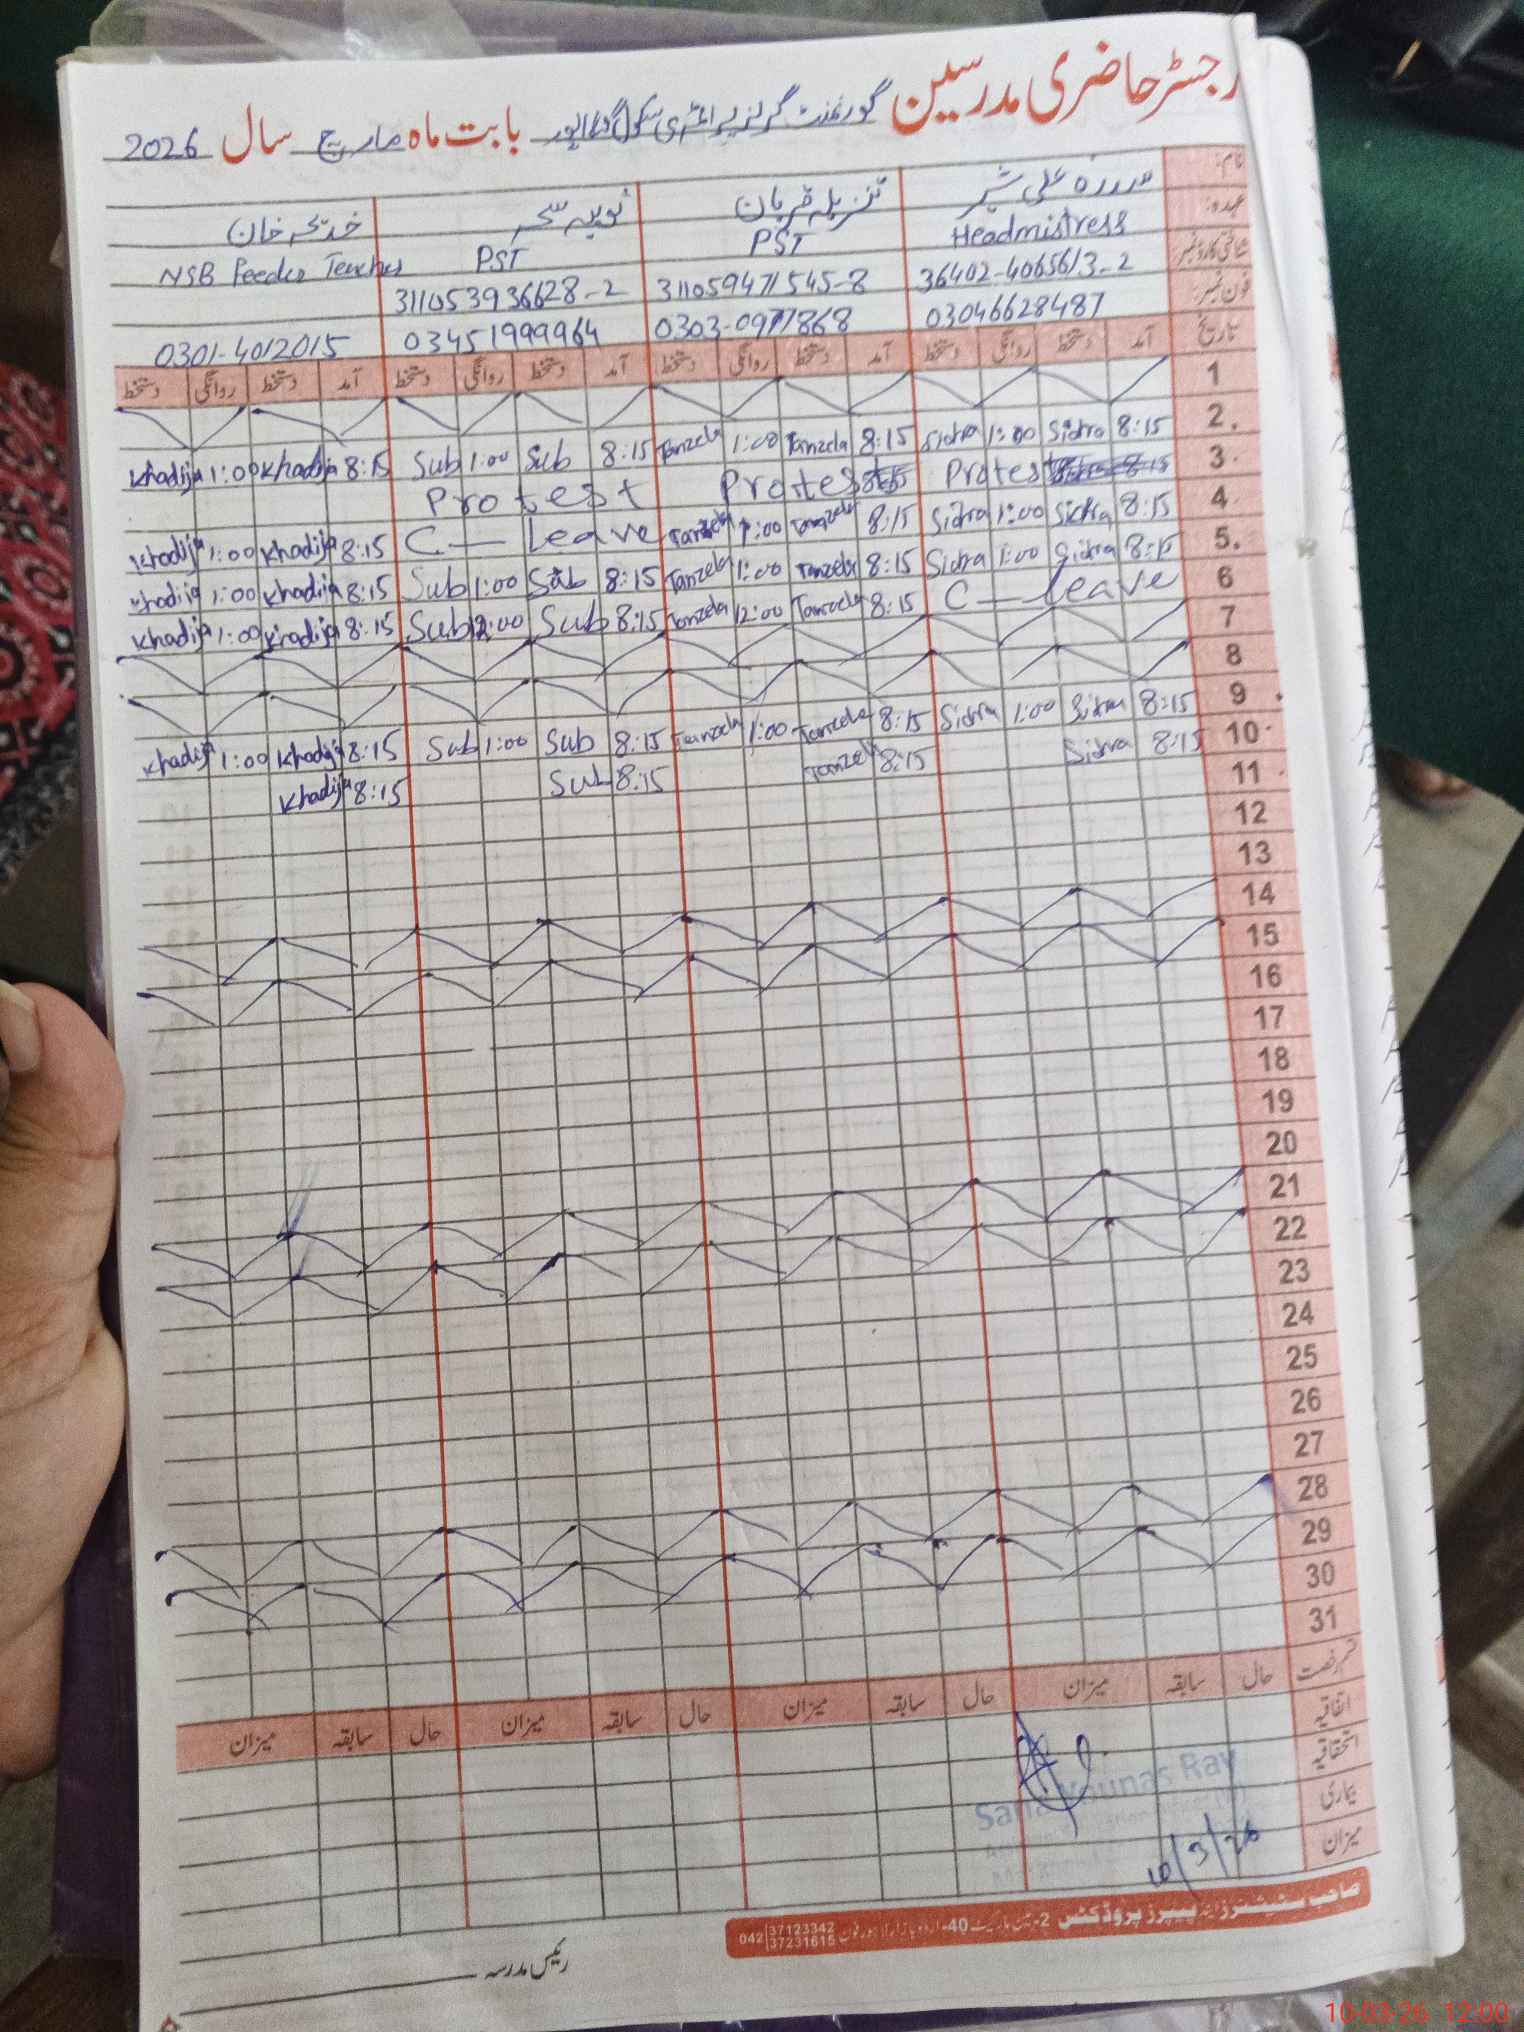 رجسٹر حاضری مدرسین گورنمنٹ گرلز پرائمری سکول بابت ماہ مارچ سال 2026
نام: سدرہ علی شیر تنزیلہ قربان ثوبیہ سحر خدیجہ خان
عہدہ: Headmistress PST PST NSB Feeder Teacher
شناختی کارڈ نمبر 36402-4065613-2 311059471545-8 311053936628-2
فون نمبر: 03046628487 0303-0977868 03451999964 0301-4012015
تاریخ آمد دستخط روانگی دستخط آمد دستخط روانگی دستخط آمد دستخط روانگی دستخط آمد دستخط روانگی دستخط
1
2. 8:15 Sidra 1:00 Sidra 8:15 Tanzela 1:00 Tanzela 8:15 Sub 1:00 Sub 8:15 Khadija 1:00 Khadija
3. Protest Protest Protest
4 8:15 Sidra 1:00 Sidra 8:15 Tanzela 1:00 Tanzela C-Leave 8:15 Khadija 1:00 Khadija
5. 8:15 Sidra 1:00 Sidra 8:15 Tanzela 1:00 Tanzela 8:15 Sub 1:00 Sub 8:15 Khadija 1:00 Khadija
6 C-leave 8:15 Tanzela 12:00 Tanzela 8:15 Sub 12:00 Sub 8:15 Khadija 1:00 Khadija
7
8
9 8:15 Sidra 1:00 Sidra 8:15 Tanzela 1:00 Tanzela 8:15 Sub 1:00 Sub 8:15 Khadija 1:00 Khadija
10. 8:15 Sidra 8:15 Tanzela 8:15 Sub 8:15 Khadija
11
12
13
14
15
16
17
18
19
20
21
22
23
24
25
26
27
28
29
30
31
قسم رخصت حال سابقہ میزان حال سابقہ میزان حال سابقہ میزان حال سابقہ میزان
اتفاقیہ
استحقاقیہ
بیماری
میزان
Sana Younas Ray
10/3/26
صاحب سٹیشنرز اینڈ پیپرز پروڈکٹس 2-مین مارکیٹ 40-اردو بازار لاہور فون 042 37123342 37231615
رئیس مدرسہ
10-03-26 12:00